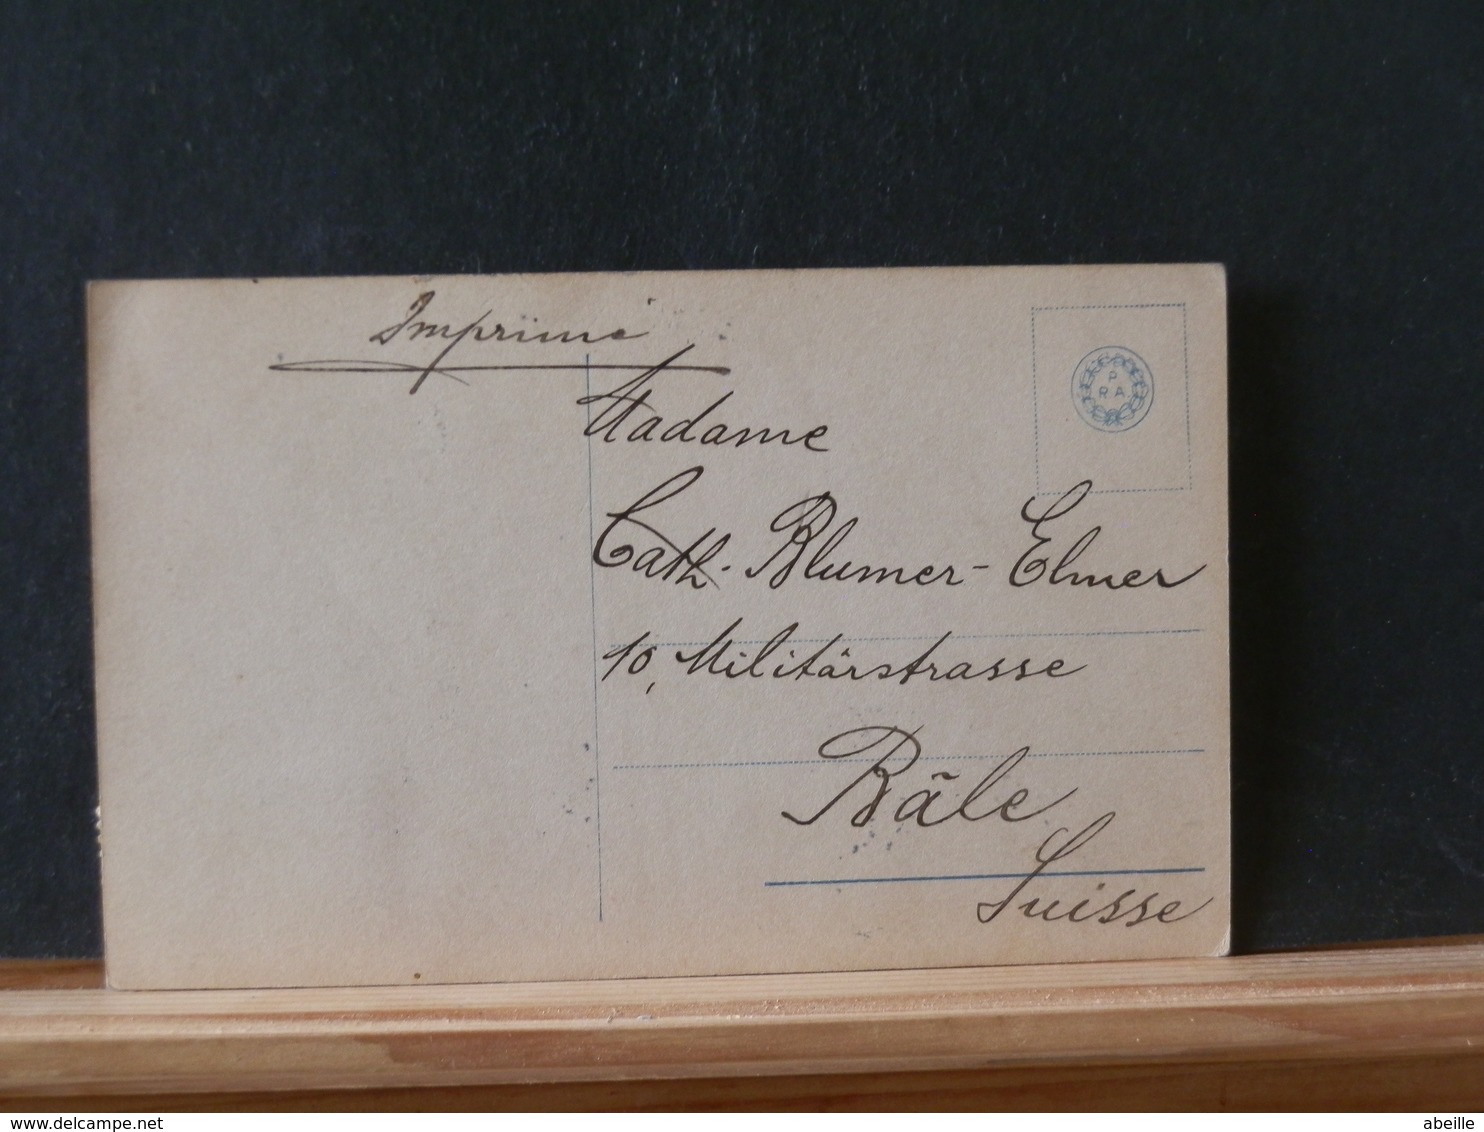 Imprimé
P
R A
Madame
Cath. Blumer-Elmer
10, Militärstrasse
Bâle
Suisse
www.delcampe.net
abeille